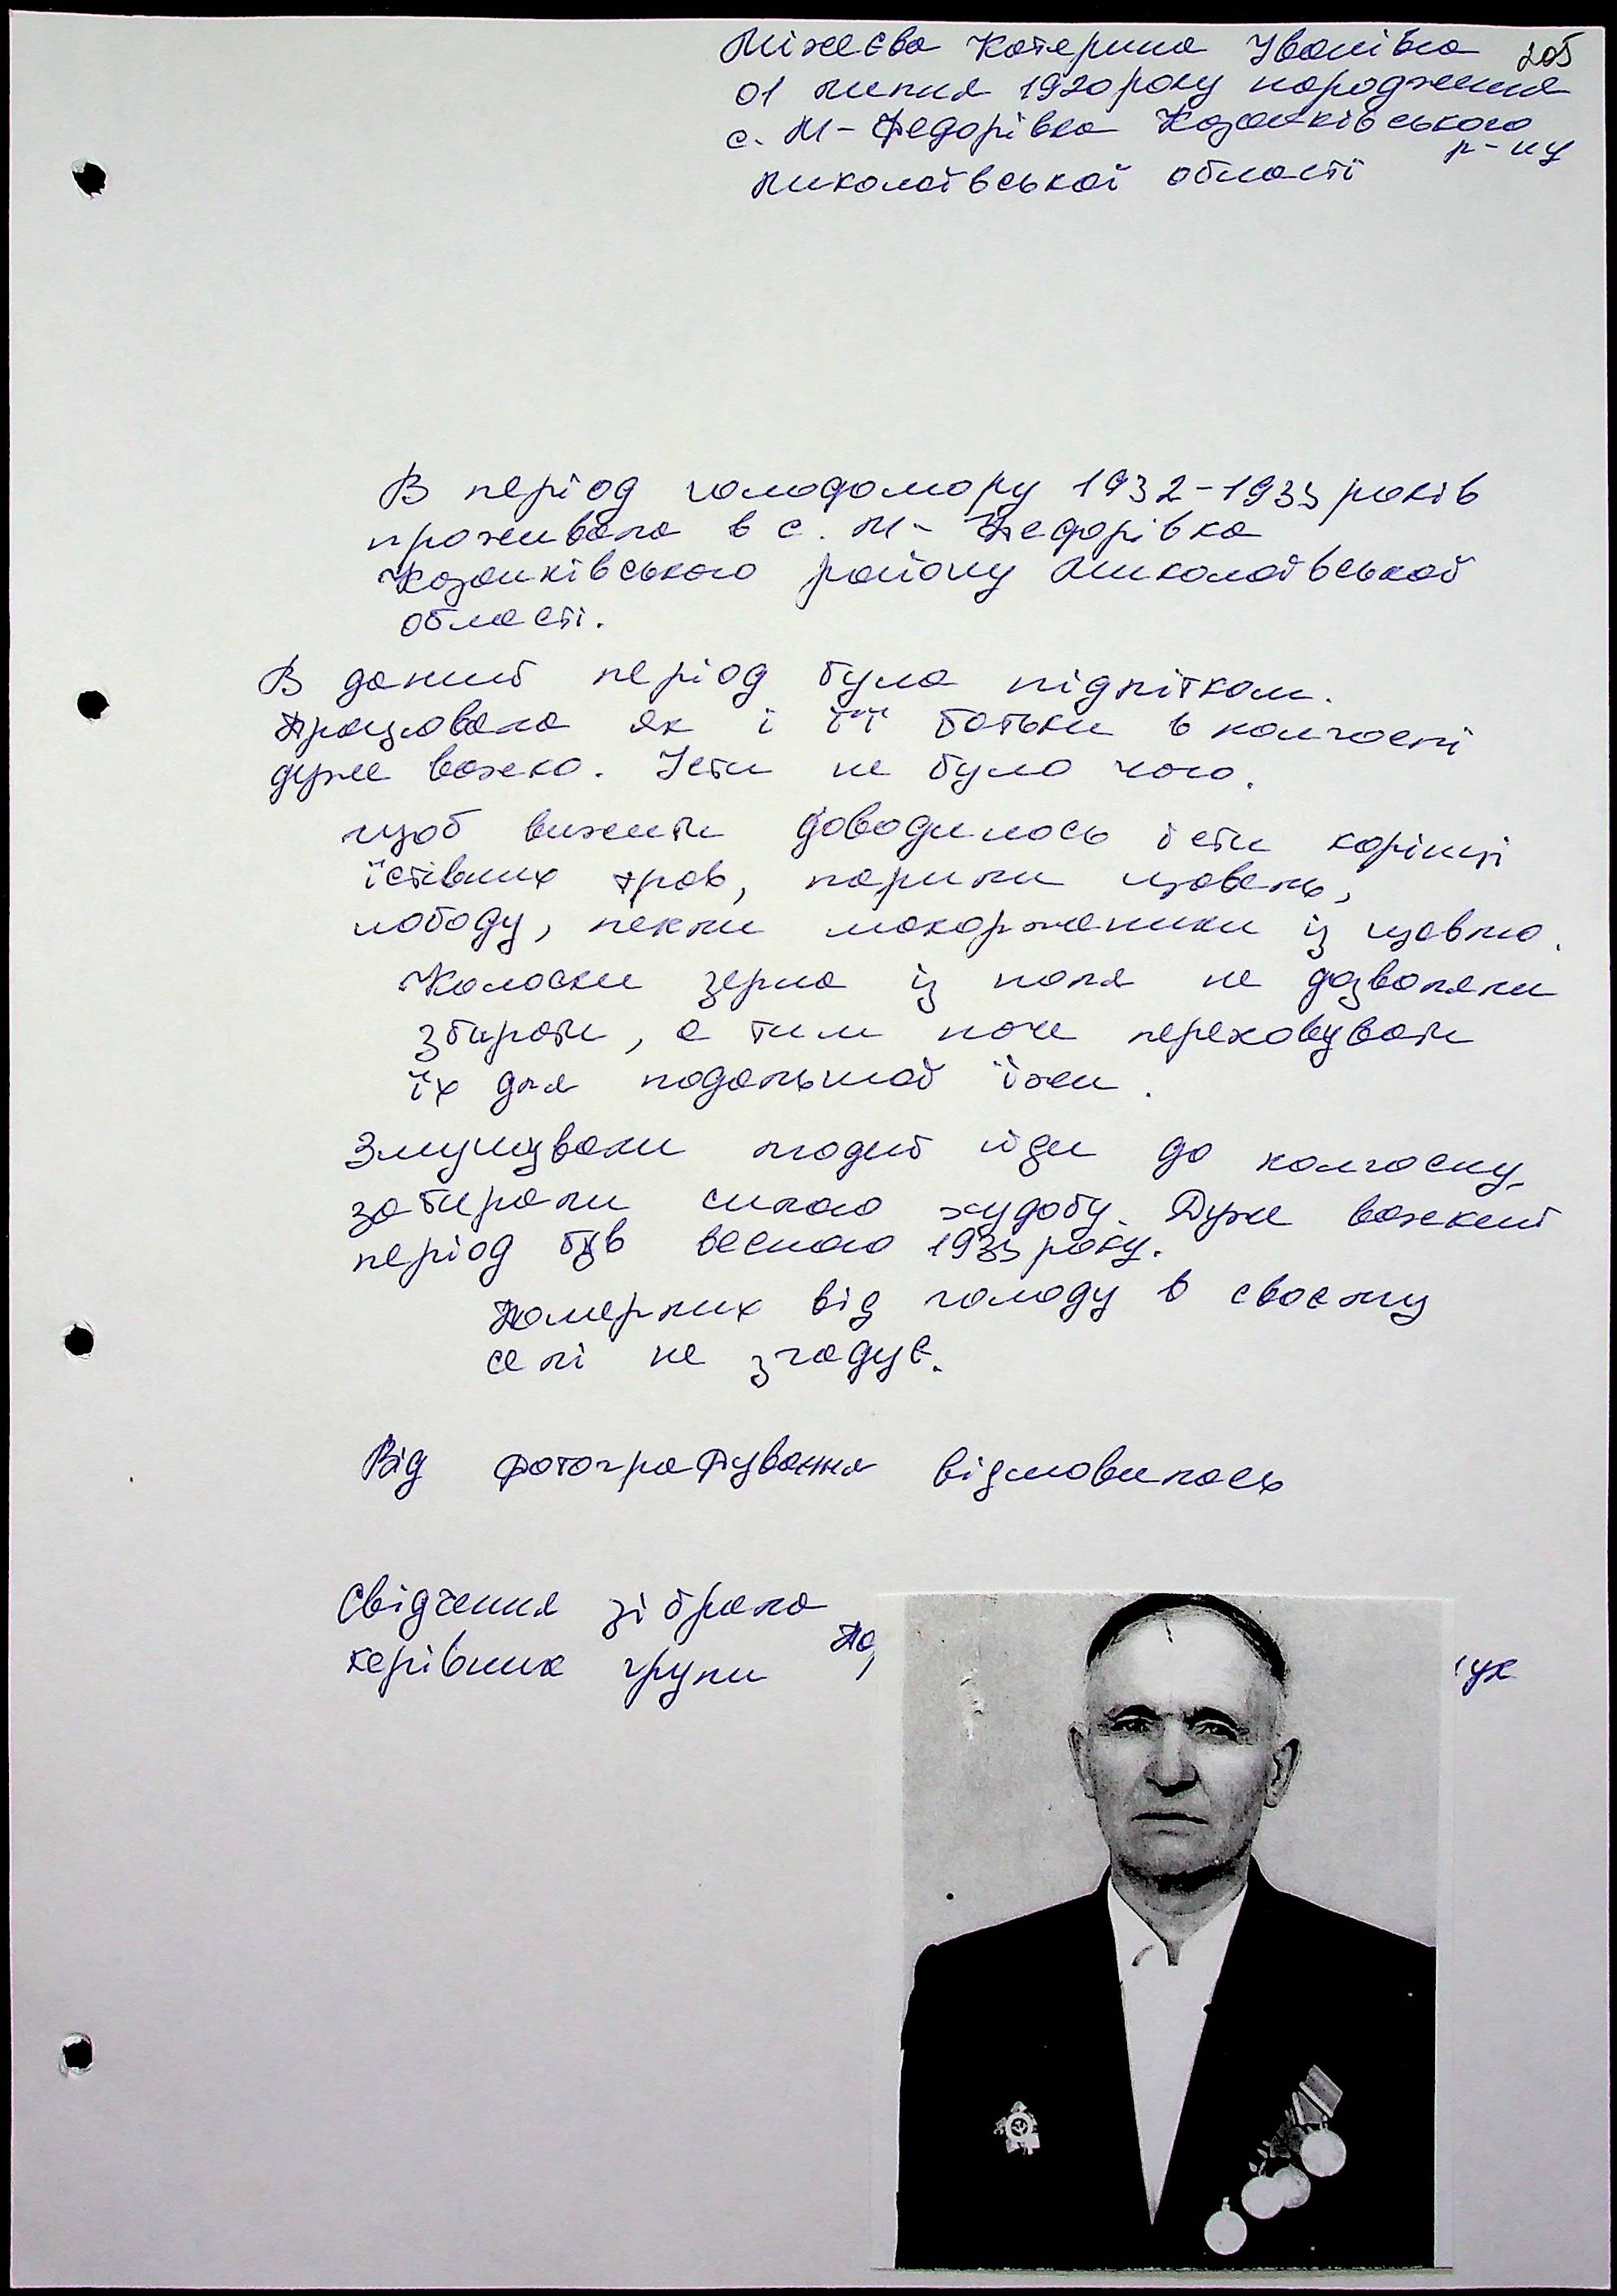 Міхеєва Катерина Іванівна 205
01 липня 1920 року народження
с. М-Федорівка Казанківського
р-ну
Миколаївської області
В період голодомору 1932-1933 років
проживала в с. М-Федорівка
Казанківського району Миколаївської
області.
В даний період була підлітком.
Працювала як і її батьки в колгоспі
дуже важко. Їсти не було чого.
Щоб вижити доводилось їсти корінці
їстівних трав, парили щавель,
лободу, пекли мокорженики із щавлю.
Колоски зерна із поля не дозволяли
збирати, а тим паче переховувати
їх для подальшої їжи.
Змушували людей йди до колгоспу,
забирали силою худобу. Дуже важкий
період був весною 1933 року.
Померлих від голоду в своєму
селі не згадує.
Від фотографування відмовилась
Свідчення зібрала
керівник групи